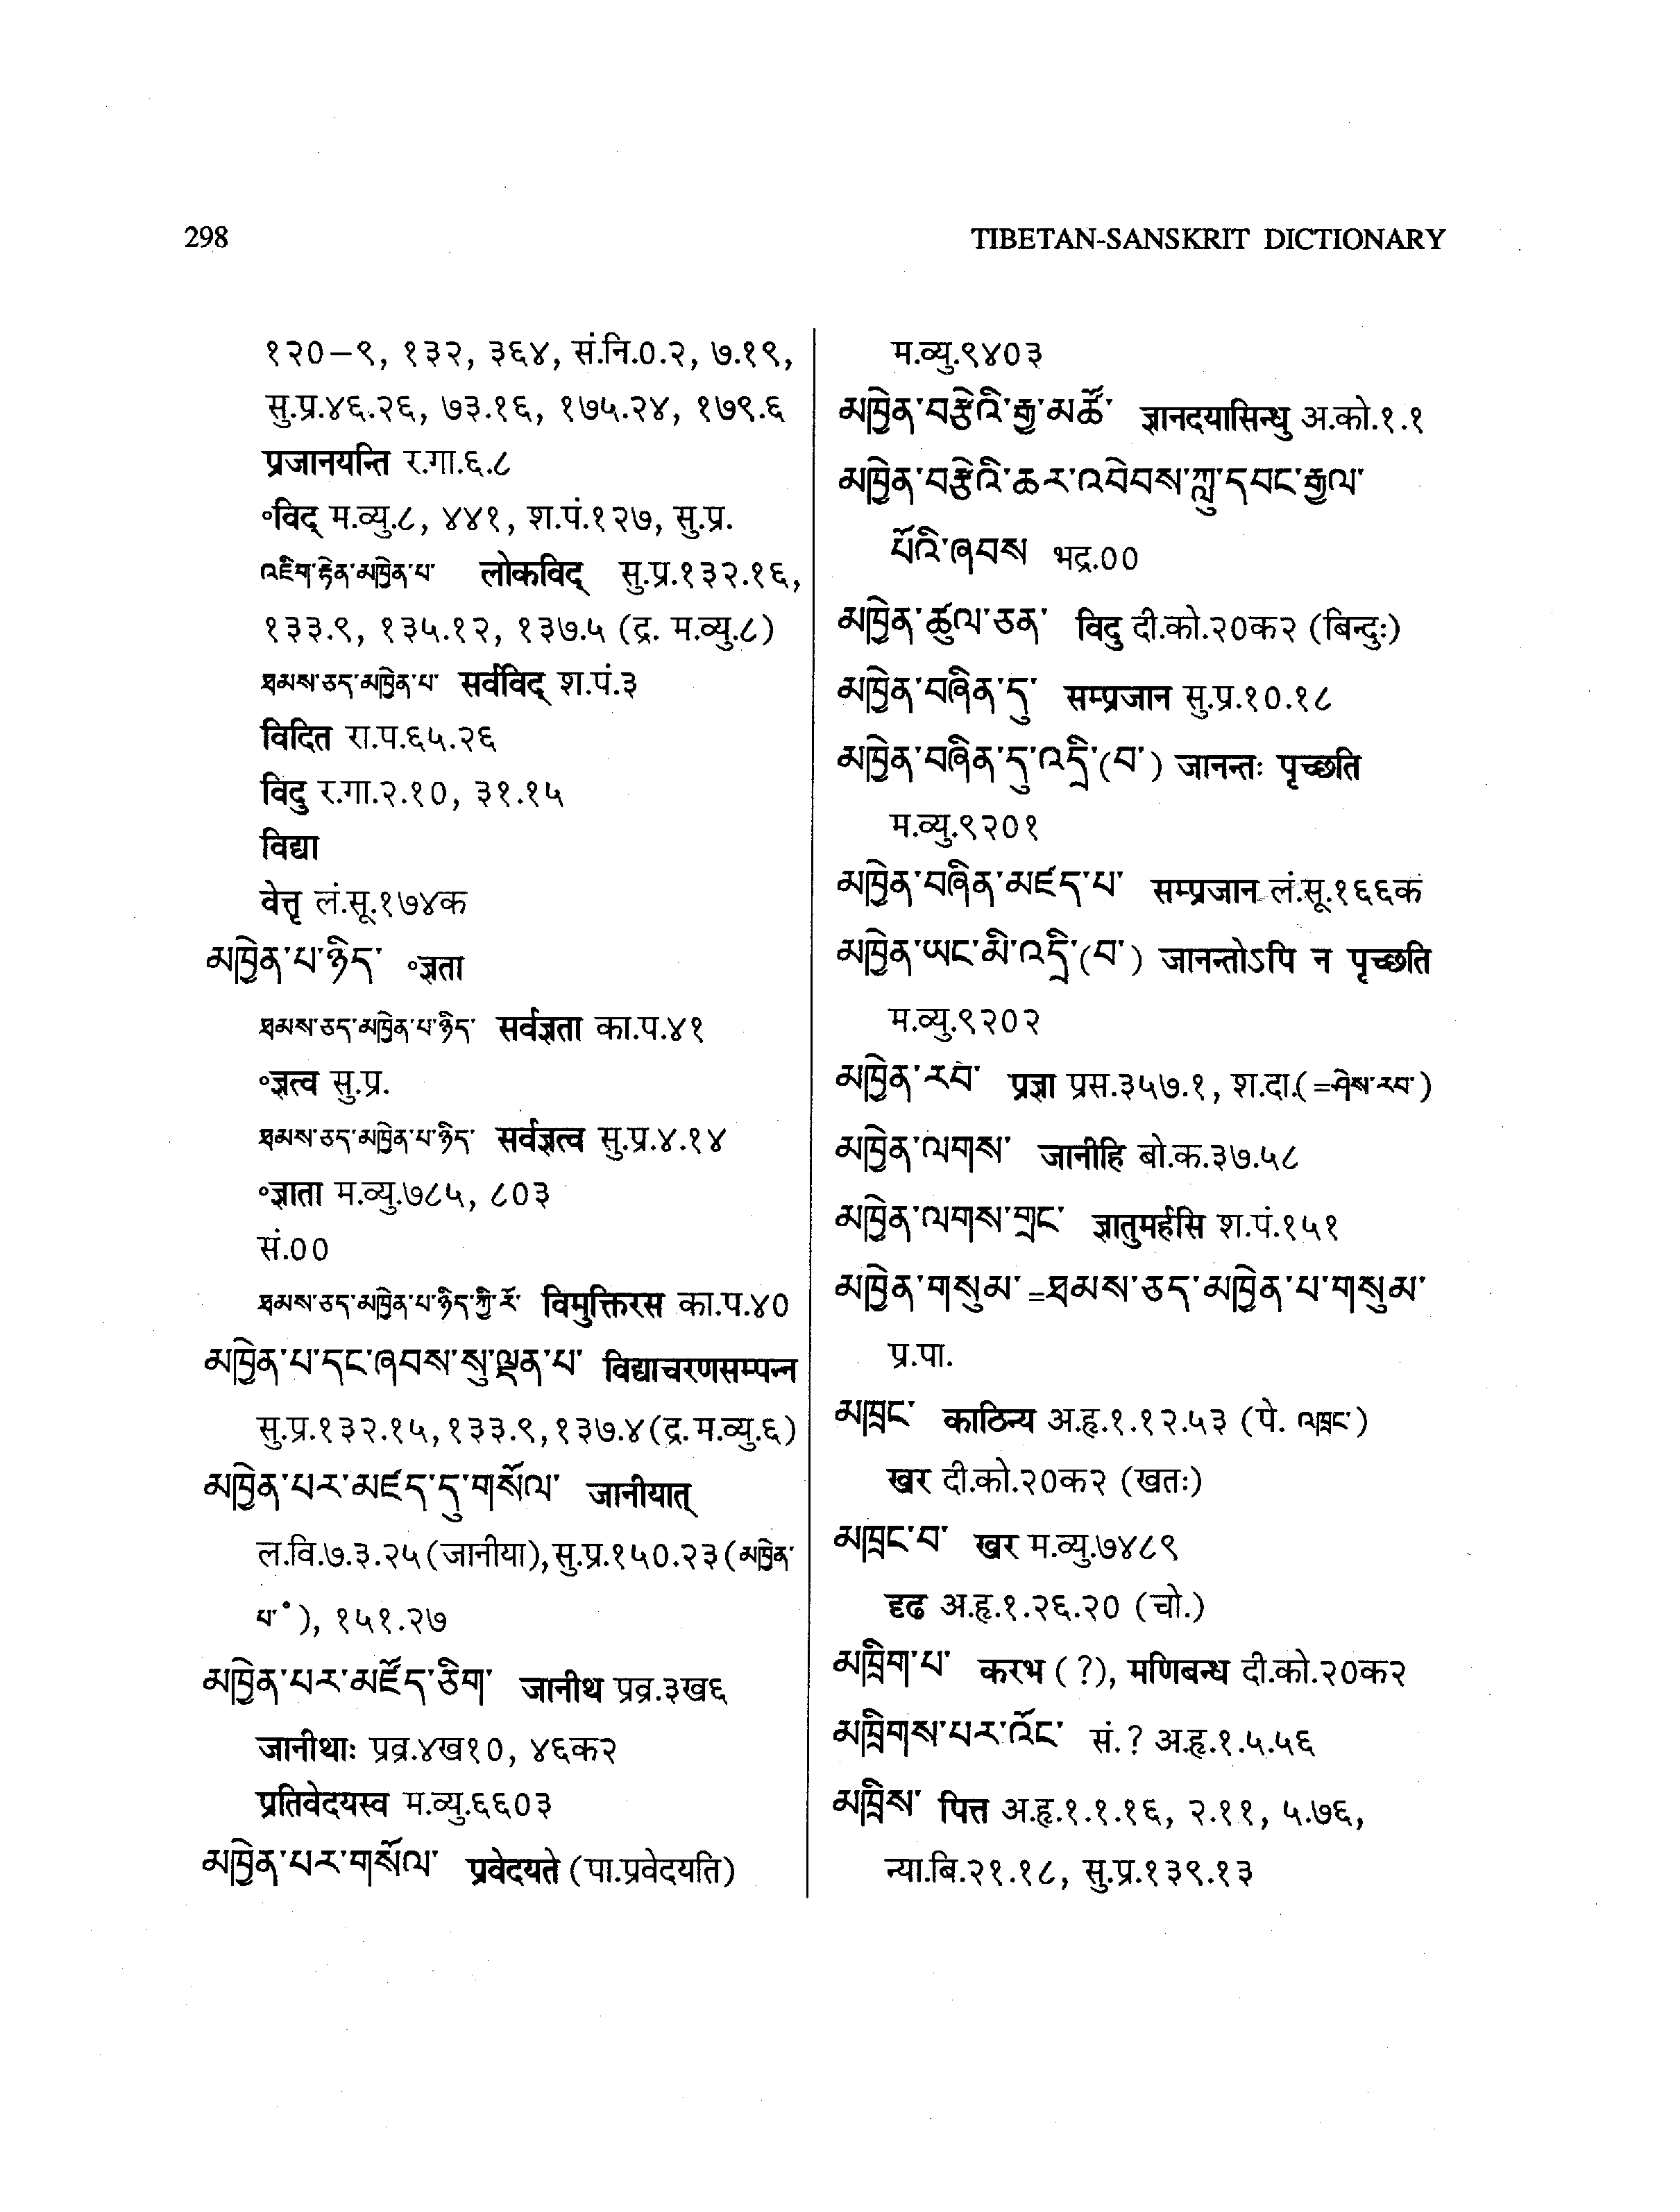 298
TIBETAN-SANSKRIT DICTIONARY
१२०–९, १३२, ३६४, सं.नि.०.२, ७.१९,
सु.प्र.४६.२६, ७३.१६, १७५.२४, १७९.६
प्रजानयन्ति र.गा.६.८
॰विद् म.व्यु.८, ४४१, श.पं.१२७, सु.प्र.
འཇིག་རྟེན་མཁྱེན་པ་ लोकविद् सु.प्र.१३२.१६,
१३३.९, १३५.१२, १३७.५ (द्र. म.व्यु.८)
ཐམས་ཅད་མཁྱེན་པ་ सर्वविद् श.पं.३
विदित रा.प.६५.२६
विदु र.गा.२.१०, ३१.१५
विद्या
वेत्तृ लं.सू.१७४क
མཁྱེན་པ་ཉིད་ ॰ज्ञता
ཐམས་ཅད་མཁྱེན་པ་ཉིད་ सर्वज्ञता का.प.४१
॰ज्ञत्व सु.प्र.
ཐམས་ཅད་མཁྱེན་པ་ཉིད་ सर्वज्ञत्व सु.प्र.४.१४
॰ज्ञाता म.व्यु.७८५, ८०३
सं.००
ཐམས་ཅད་མཁྱེན་པ་ཉིད་ཀྱི་རོ་ विमुक्तिरस का.प.४०
མཁྱེན་པ་དང་ཞབས་སུ་ལྡན་པ་ विद्याचरणसम्पन्न
सु.प्र.१३२.१५,१३३.९,१३७.४(द्र.म.व्यु.६)
མཁྱེན་པར་མཛད་དུ་གསོལ་ जानीयात्
ल.वि.७.३.२५(जानीया),सु.प्र.१५०.२३(མཁྱེན་
པ་॰), १५१.२७
མཁྱེན་པར་མཛོད་ཅིག་ जानीथ प्रव्र.३ख६
जानीथाः प्रव्र.४ख१०, ४६क२
प्रतिवेदयस्व म.व्यु.६६०३
མཁྱེན་པར་གསོལ་ प्रवेदयते (पा.प्रवेदयति)
म.व्यु.९४०३
མཁྱེན་བརྩེའི་རྒྱ་མཚོ་ ज्ञानदयासिन्धु अ.को.१.१
མཁྱེན་བརྩེའི་ཆར་འབེབས་ཀླུ་དབང་རྒྱལ་
པོའི་ཞབས भद्र.००
མཁྱེན་ཚུལ་ཅན་ विदु दी.को.२०क२ (बिन्दुः)
མཁྱེན་བཞིན་དུ་ सम्प्रजान सु.प्र.१०.१८
མཁྱེན་བཞིན་དུ་འདྲི་(བ་) जानन्तः पृच्छति
म.व्यु.९२०१
མཁྱེན་བཞིན་མཛད་པ་ सम्प्रजान लं.सू.१६६क
མཁྱེན་ཡང་མི་འདྲི་(བ་) जानन्तोऽपि न पृच्छति
म.व्यु.९२०२
མཁྱེན་རབ་ प्रज्ञा प्रस.३५७.१, श.दा.(=ཤེས་རབ་)
མཁྱེན་ལགས་ जानीहि बो.क.३७.५८
མཁྱེན་ལགས་གྲང་ ज्ञातुमर्हसि श.पं.१५१
མཁྱེན་གསུམ་=ཐམས་ཅད་མཁྱེན་པ་གསུམ་
प्र.पा.
མཁྲང་ काठिन्य अ.हृ.१.१२.५३ (पे. འཁྲང་)
खर दी.को.२०क२ (खतः)
མཁྲང་བ་ खर म.व्यु.७४८९
दृढ अ.हृ.१.२६.२० (चो.)
མཁྲིག་པ་ करभ (?), मणिबन्ध दी.को.२०क२
མཁྲིགས་པར་འོང་ सं.? अ.हृ.१.५.५६
མཁྲིས་ पित्त अ.हृ.१.१.१६, २.११, ५.७६,
न्या.बि.२१.१८, सु.प्र.१३९.१३